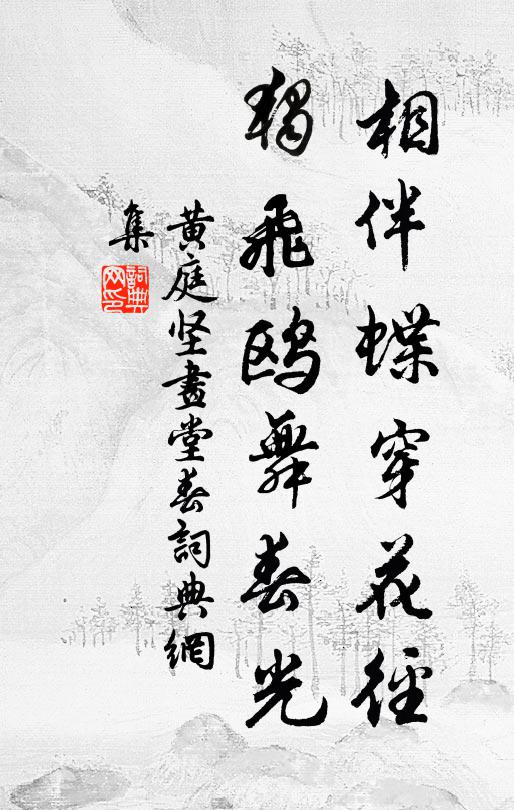 相伴蝶穿花徑
獨飛鷗舞春光
黄庭坚畫堂春詞典網
集
詞典
网印